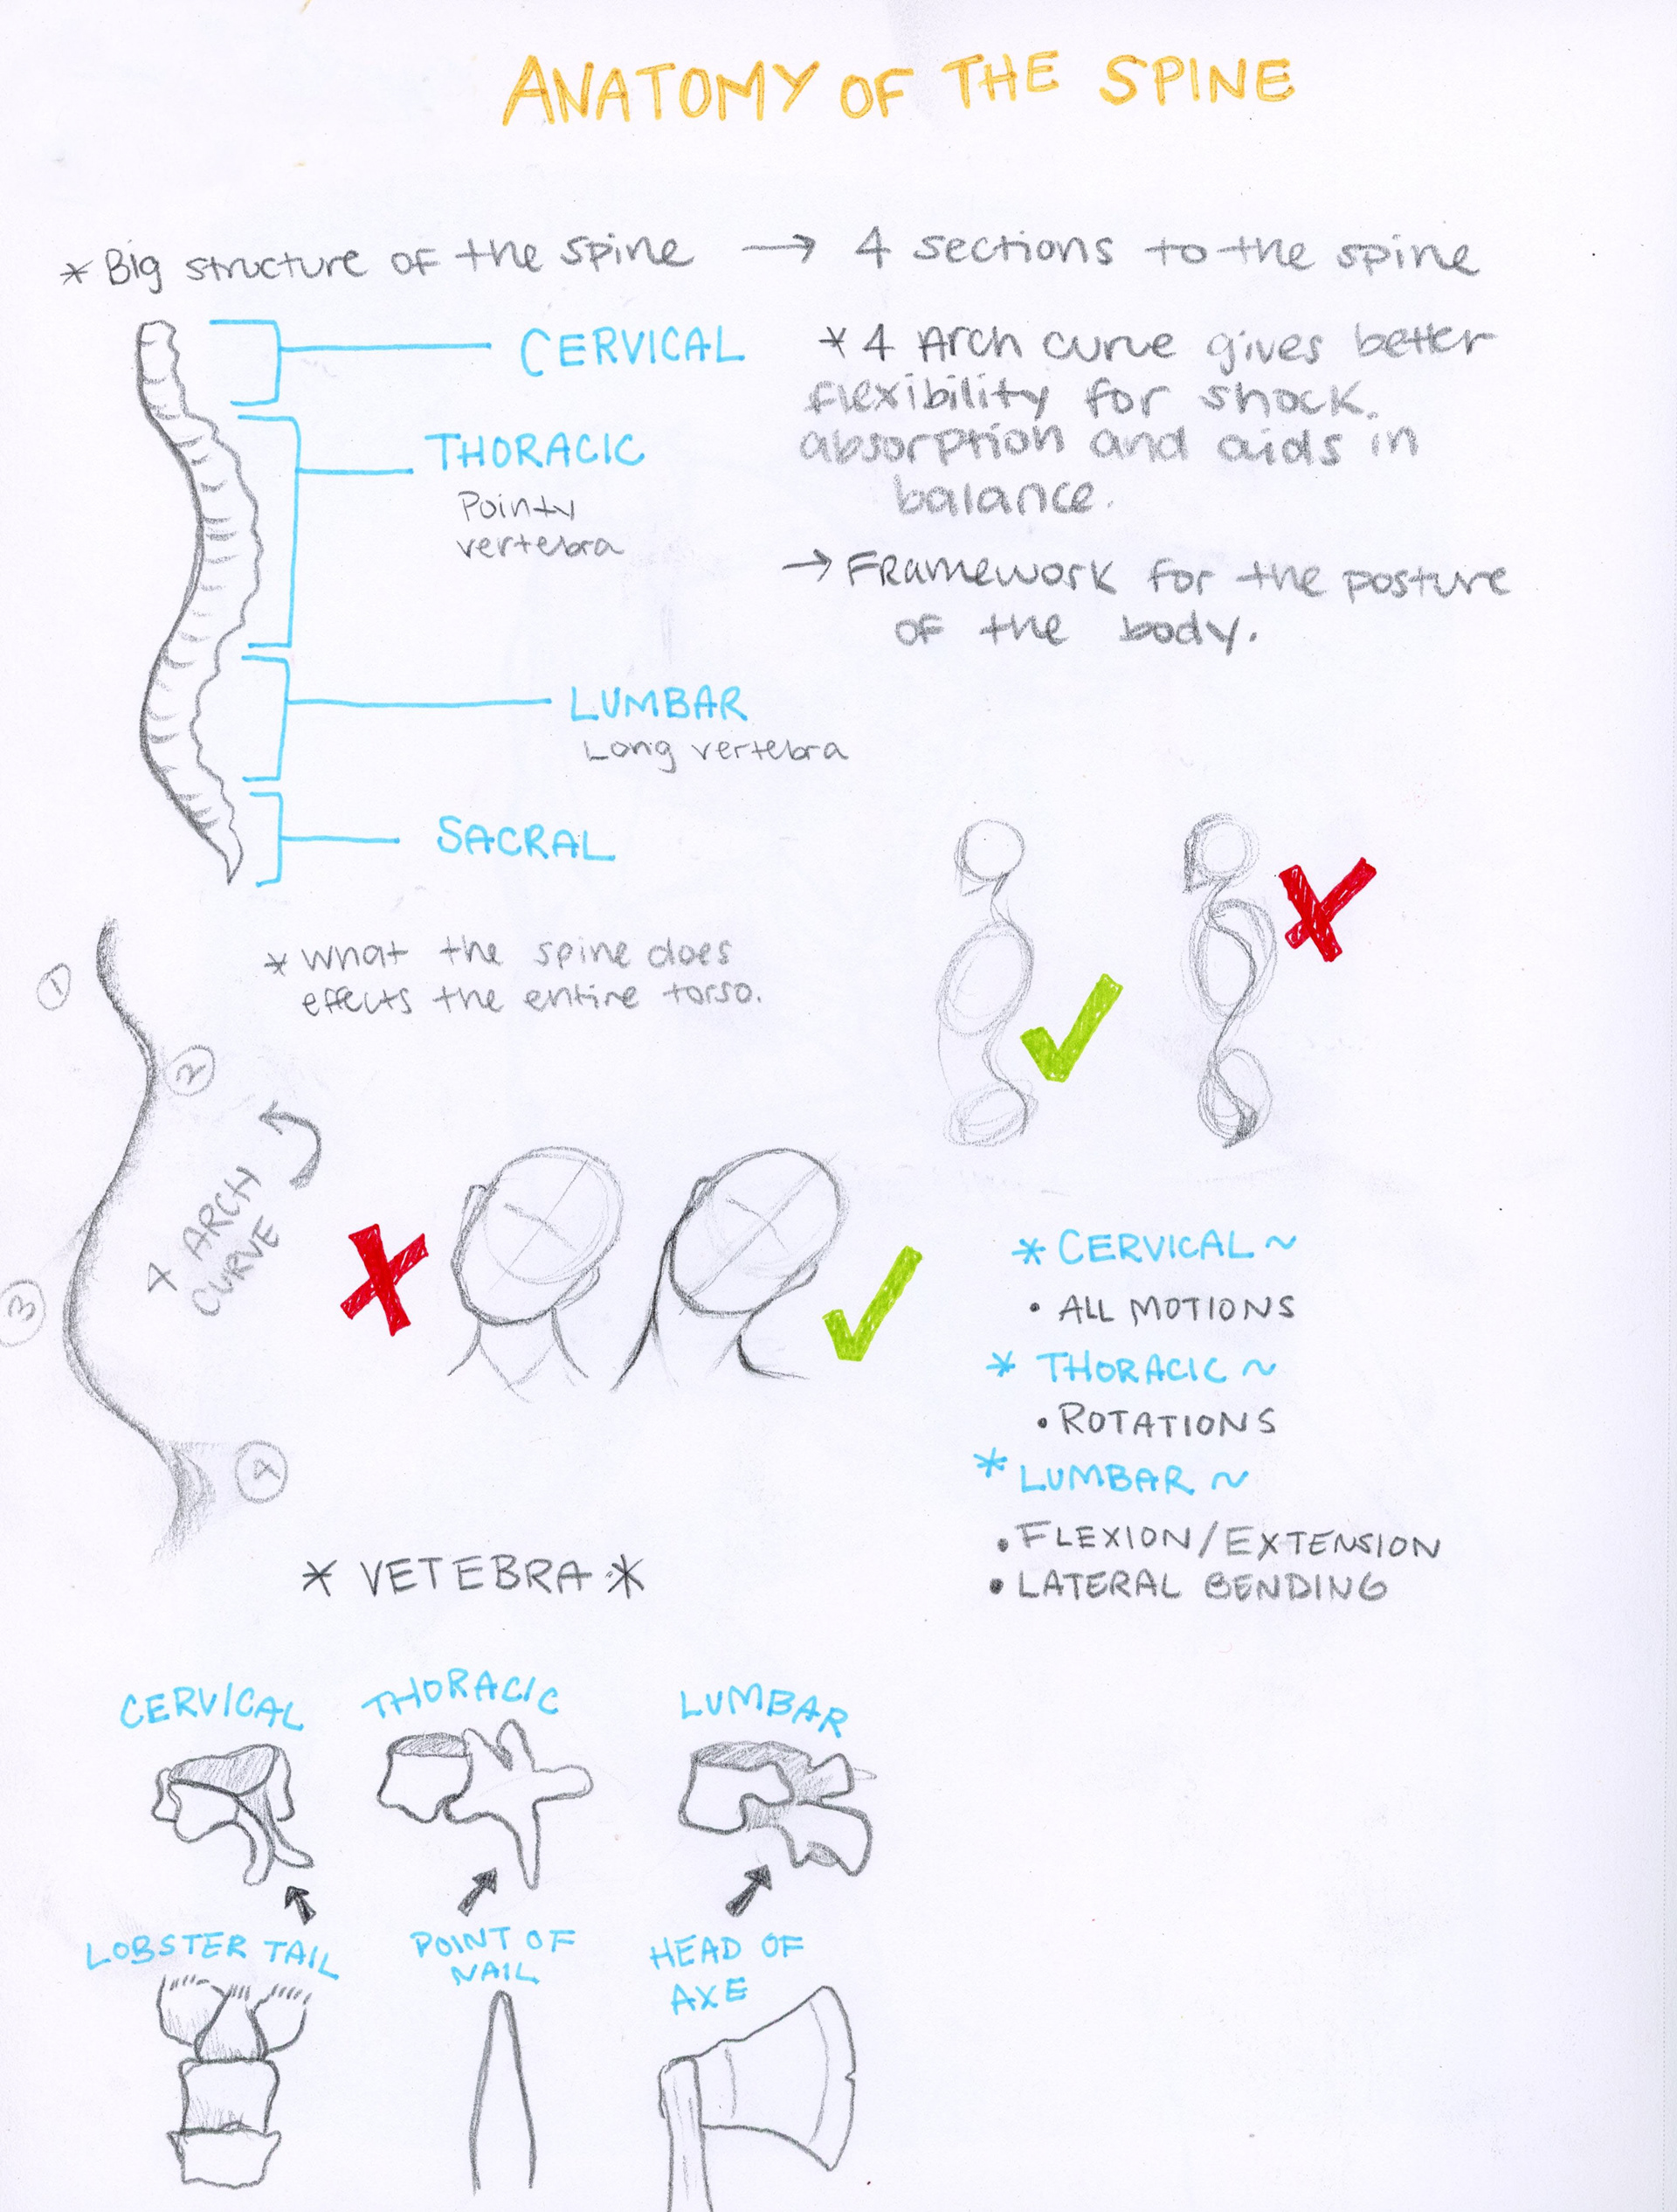 ANATOMY OF THE SPINE
* Big structure of the spine → 4 sections to the spine
CERVICAL
THORACIC
Pointy
vertebra
LUMBAR
Long vertebra
SACRAL
* 4 Arch curve gives better
flexibility for shock.
absorption and aids in
balance.
→ Framework for the posture
of the body.
* What the spine does
effects the entire torso.
1
2
3
4
4 ARCH
CURVE
* CERVICAL ~
• ALL MOTIONS
* THORACIC ~
• ROTATIONS
* LUMBAR ~
• FLEXION/EXTENSION
• LATERAL BENDING
* VETEBRA *
CERVICAL
THORACIC
LUMBAR
LOBSTER TAIL
POINT OF
NAIL
HEAD OF
AXE